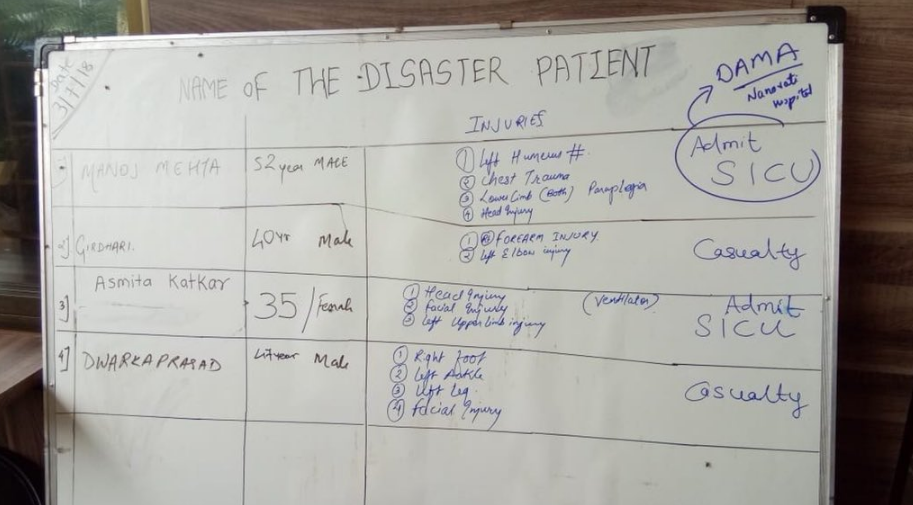 Date
3/7/18
NAME OF THE DISASTER PATIENT
DAMA
Nanavati
Hospital
INJURIES
MANOJ MEHTA 52 year MALE ① Left Humerus # Admit
② Chest Trauma SICU
③ Lower limb (Both) Paraplegia
④ Head Injury
2] GIRDHARI. 40 yr Male ① Rt FOREARM INJURY Casualty
② left Elbow injury
3] Asmita Katkar 35/Female ① Head Injury (Ventilator) Admit
② Facial Injury SICU
③ Left Upper limb injury
4] DWARKAPRASAD year Male ① Right foot Casualty
② Left Ankle
③ Left Leg
④ Facial Injury